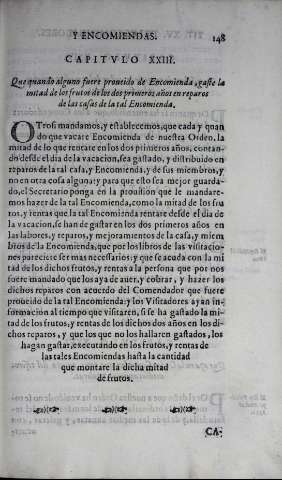 Y ENCOMIENDAS. 148
CAPITVLO XXIII.
Que quando alguno fuere proueido de Encomienda, gaste la
mitad de los frutos de los dos primeros años en reparos
de las casas de la tal Encomienda.
OTrosi mandamos, y establecemos, que cada y quan
do que vacare Encomienda de nuestra Orden, la
mitad de lo que rentare en los dos primeros años, contan-
do desde el dia de la vacacion, sea gastado, y distribuido en
reparos de la tal casa, y Encomienda, y de sus miembros, y
no en otra cosa alguna: y para que esto sea mejor guarda-
do, el Secretario ponga en la prouision que le mandare-
mos hazer de la tal Encomienda, como la mitad de los fru
tos, y rentas que la tal Encomienda rentare desde el dia de
la vacacion, se han de gastar en los dos primeros años en
las labores, y reparos, y mejoramentos de la casa, y miem
bros de la Encomienda, que por los libros de las visitacio-
nes pareciere ser mas necessarios: y que se acuda con la mi
tad de los dichos frutos, y rentas a la persona que por nos
fuere mandado que los aya de auer, y cobrar, y hazer los
dichos reparos con acuerdo del Comendador que fuere
proueido de la tal Encomienda: y los Visitadores ayan in-
formacion al tiempo que visitaren, si se ha gastado la mi-
tad de los frutos, y rentas de los dichos dos años en los di-
chos reparos, y que los que no los hallaren gastados, los
hagan gastar, executando en los frutos, y rentas de
las tales Encomiendas hasta la cantidad
que montare la dicha mitad
de frutos.
CA-